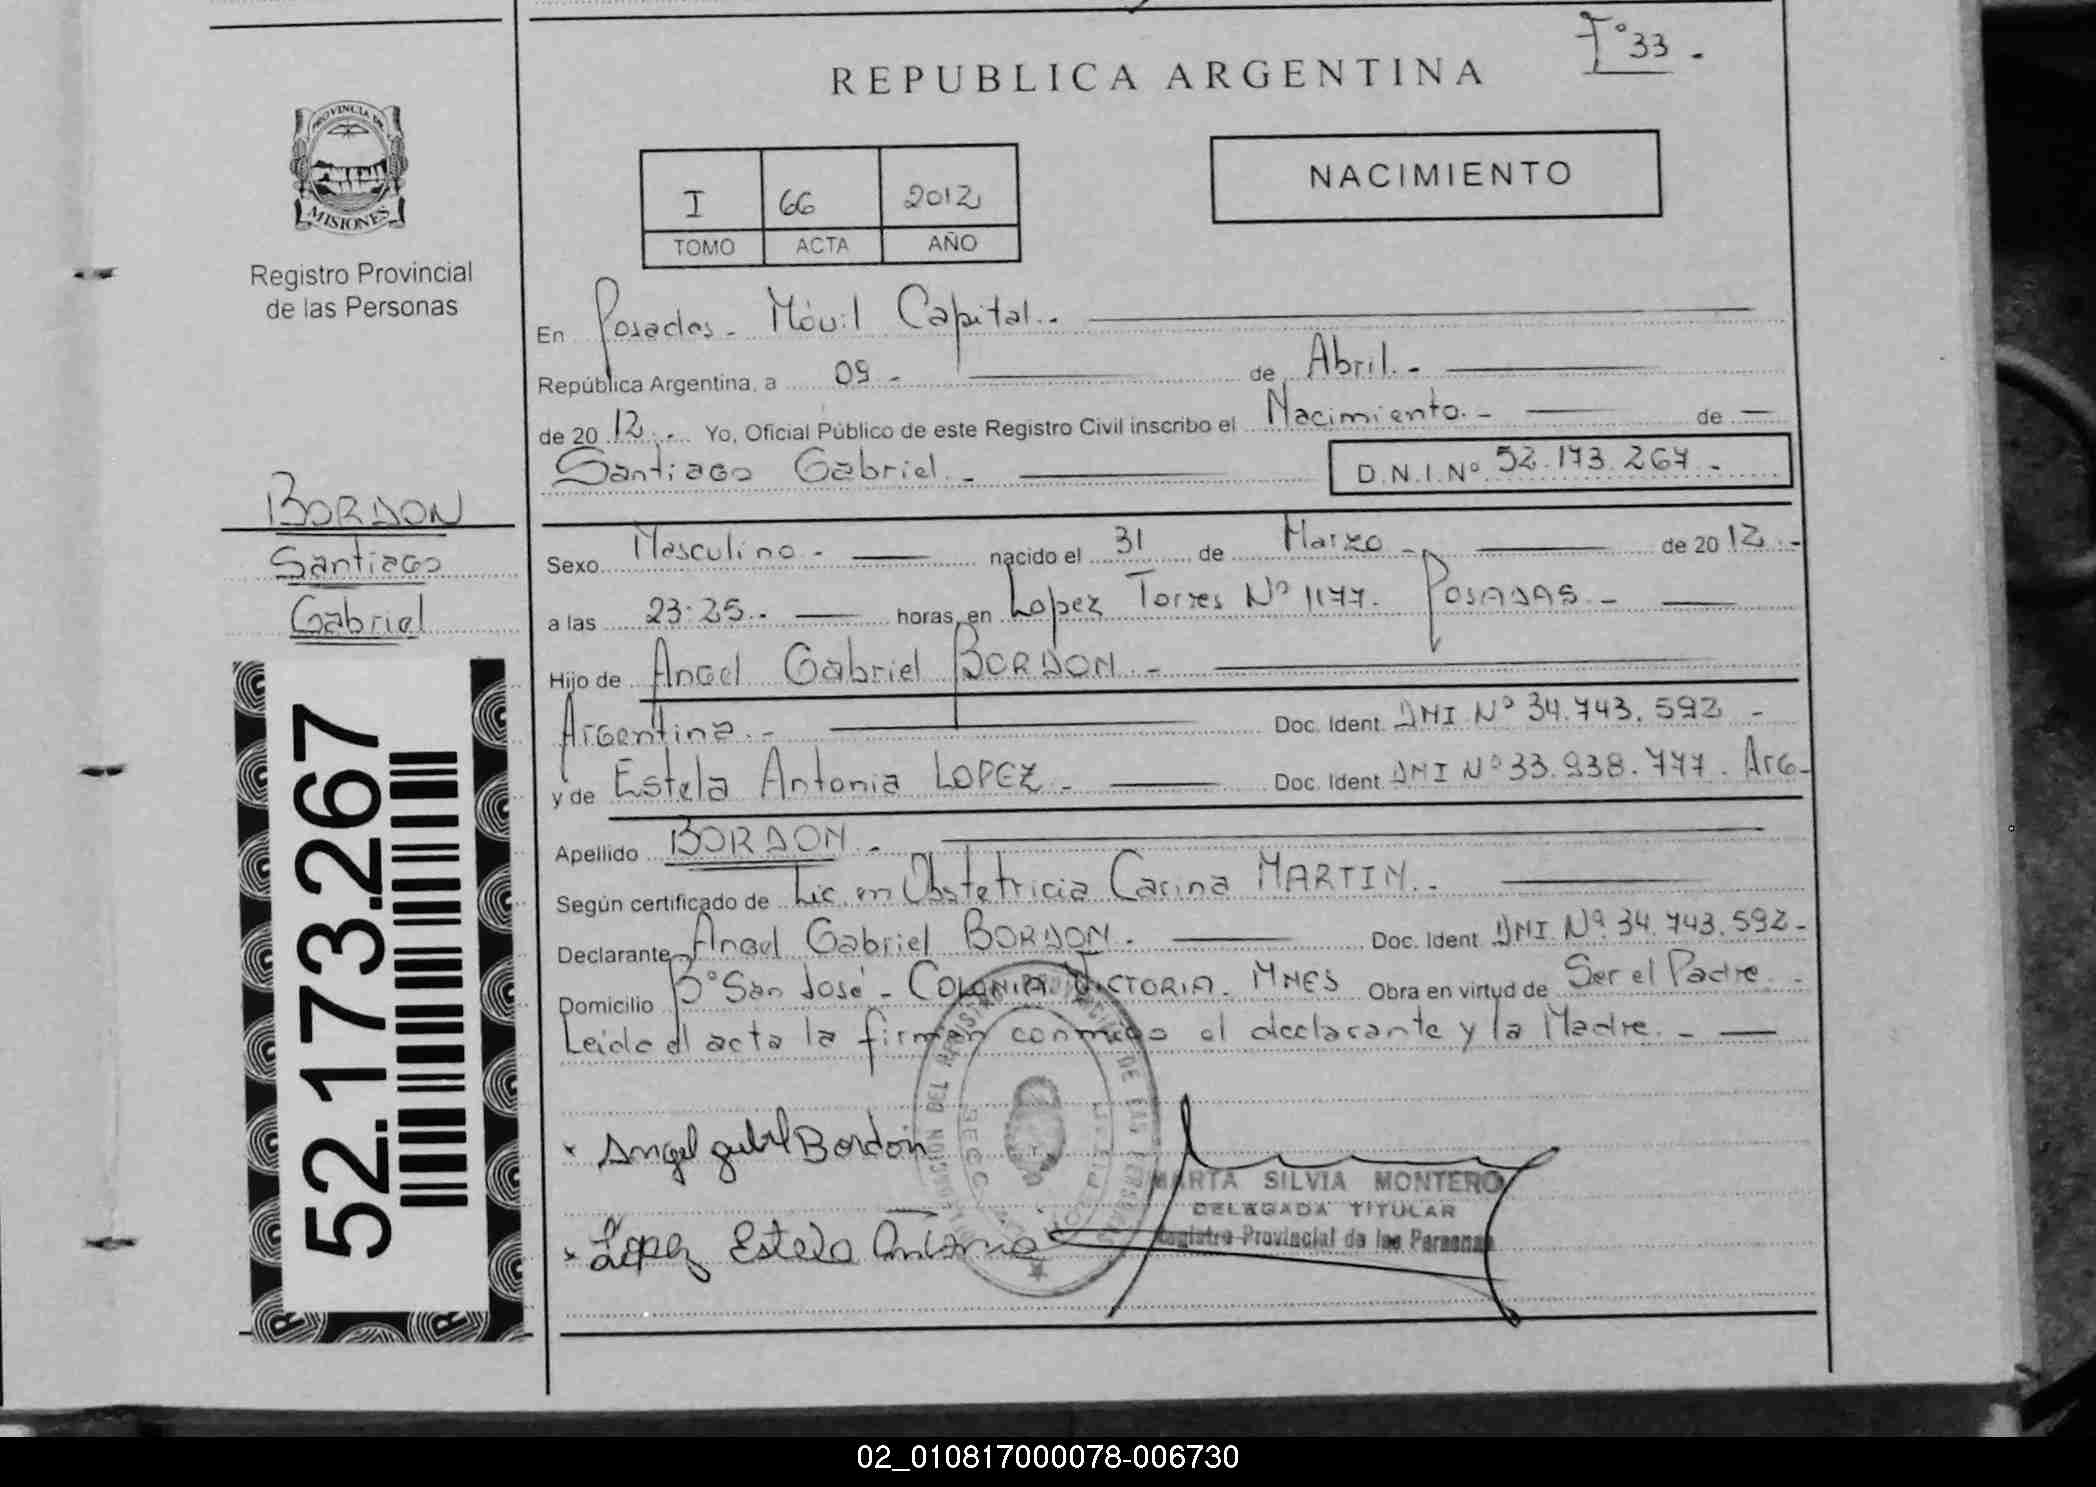 Tº 33 -
REPUBLICA ARGENTINA
PROVINCIA DE
MISIONES
Registro Provincial
de las Personas
I 66 2012
TOMO ACTA AÑO
NACIMIENTO
En Posadas - Móvil Capital.-
República Argentina, a 09 - de Abril.-
de 20 12.- Yo, Oficial Público de este Registro Civil inscribo el Nacimiento.- de
Santiago Gabriel.-
D.N.I.Nº 52.173.267.-
BORDON
Santiago
Gabriel
Sexo Masculino.- nacido el 31 de Marzo - de 20 12.-
a las 23:25.- horas, en Lopez Torres Nº 1177. POSADAS.-
Hijo de Angel Gabriel BORDON.-
Argentina.- Doc. Ident. DNI Nº 34.743.592 -
y de Estela Antonia LOPEZ.- Doc. Ident. DNI Nº 33.938.777. Arg-
Apellido BORDON.-
Según certificado de Lic. en Obstetricia Carina MARTIN.-
Declarante Angel Gabriel BORDON.- Doc. Ident. DNI. Nº. 34.743.592-
Domicilio Bº San José - COLONIA VICTORIA. MNES Obra en virtud de Ser el Padre.-
Leida el acta la firman conmigo el declarante y la Madre.-
52.173.267
x Angel gabriel Bordon
x Lopez Estela Antonia
MARTA SILVIA MONTERO
DELEGADA TITULAR
Registro Provincial de las Personas
02_010817000078-006730